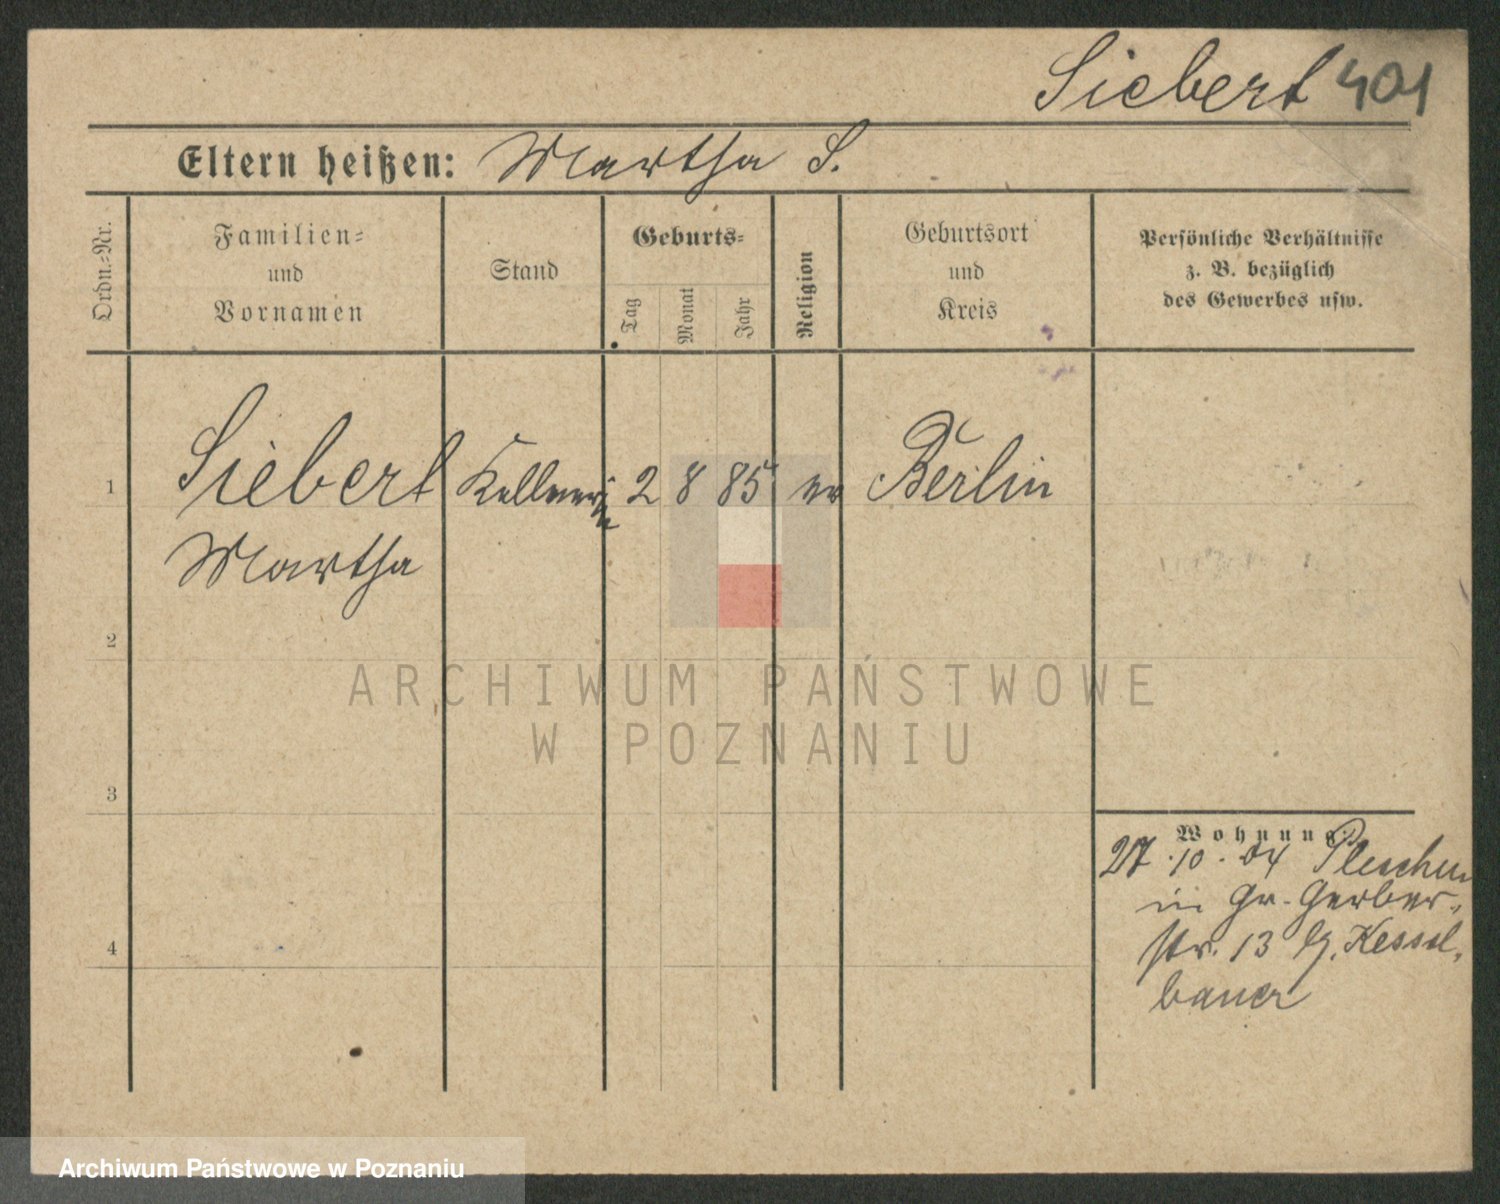 Siebert 401
Eltern heißen: Martha S.
Ordn.-Nr.
Familien-
und
Vornamen
Stand
Geburts-
Tag
Monat
Jahr
Religion
Geburtsort
und
Kreis
Persönliche Verhältnisse
z. B. bezüglich
des Gewerbes usw.
1 Siebert Kellnerin 2 8 85 ev Berlin
Martha
2
3
4
Wohnung
27.10.04 Pleschen
in Gr. Gerber-
str. 13 b. Kessel-
bauer
ARCHIWUM PAŃSTWOWE
W POZNANIU
Archiwum Państwowe w Poznaniu